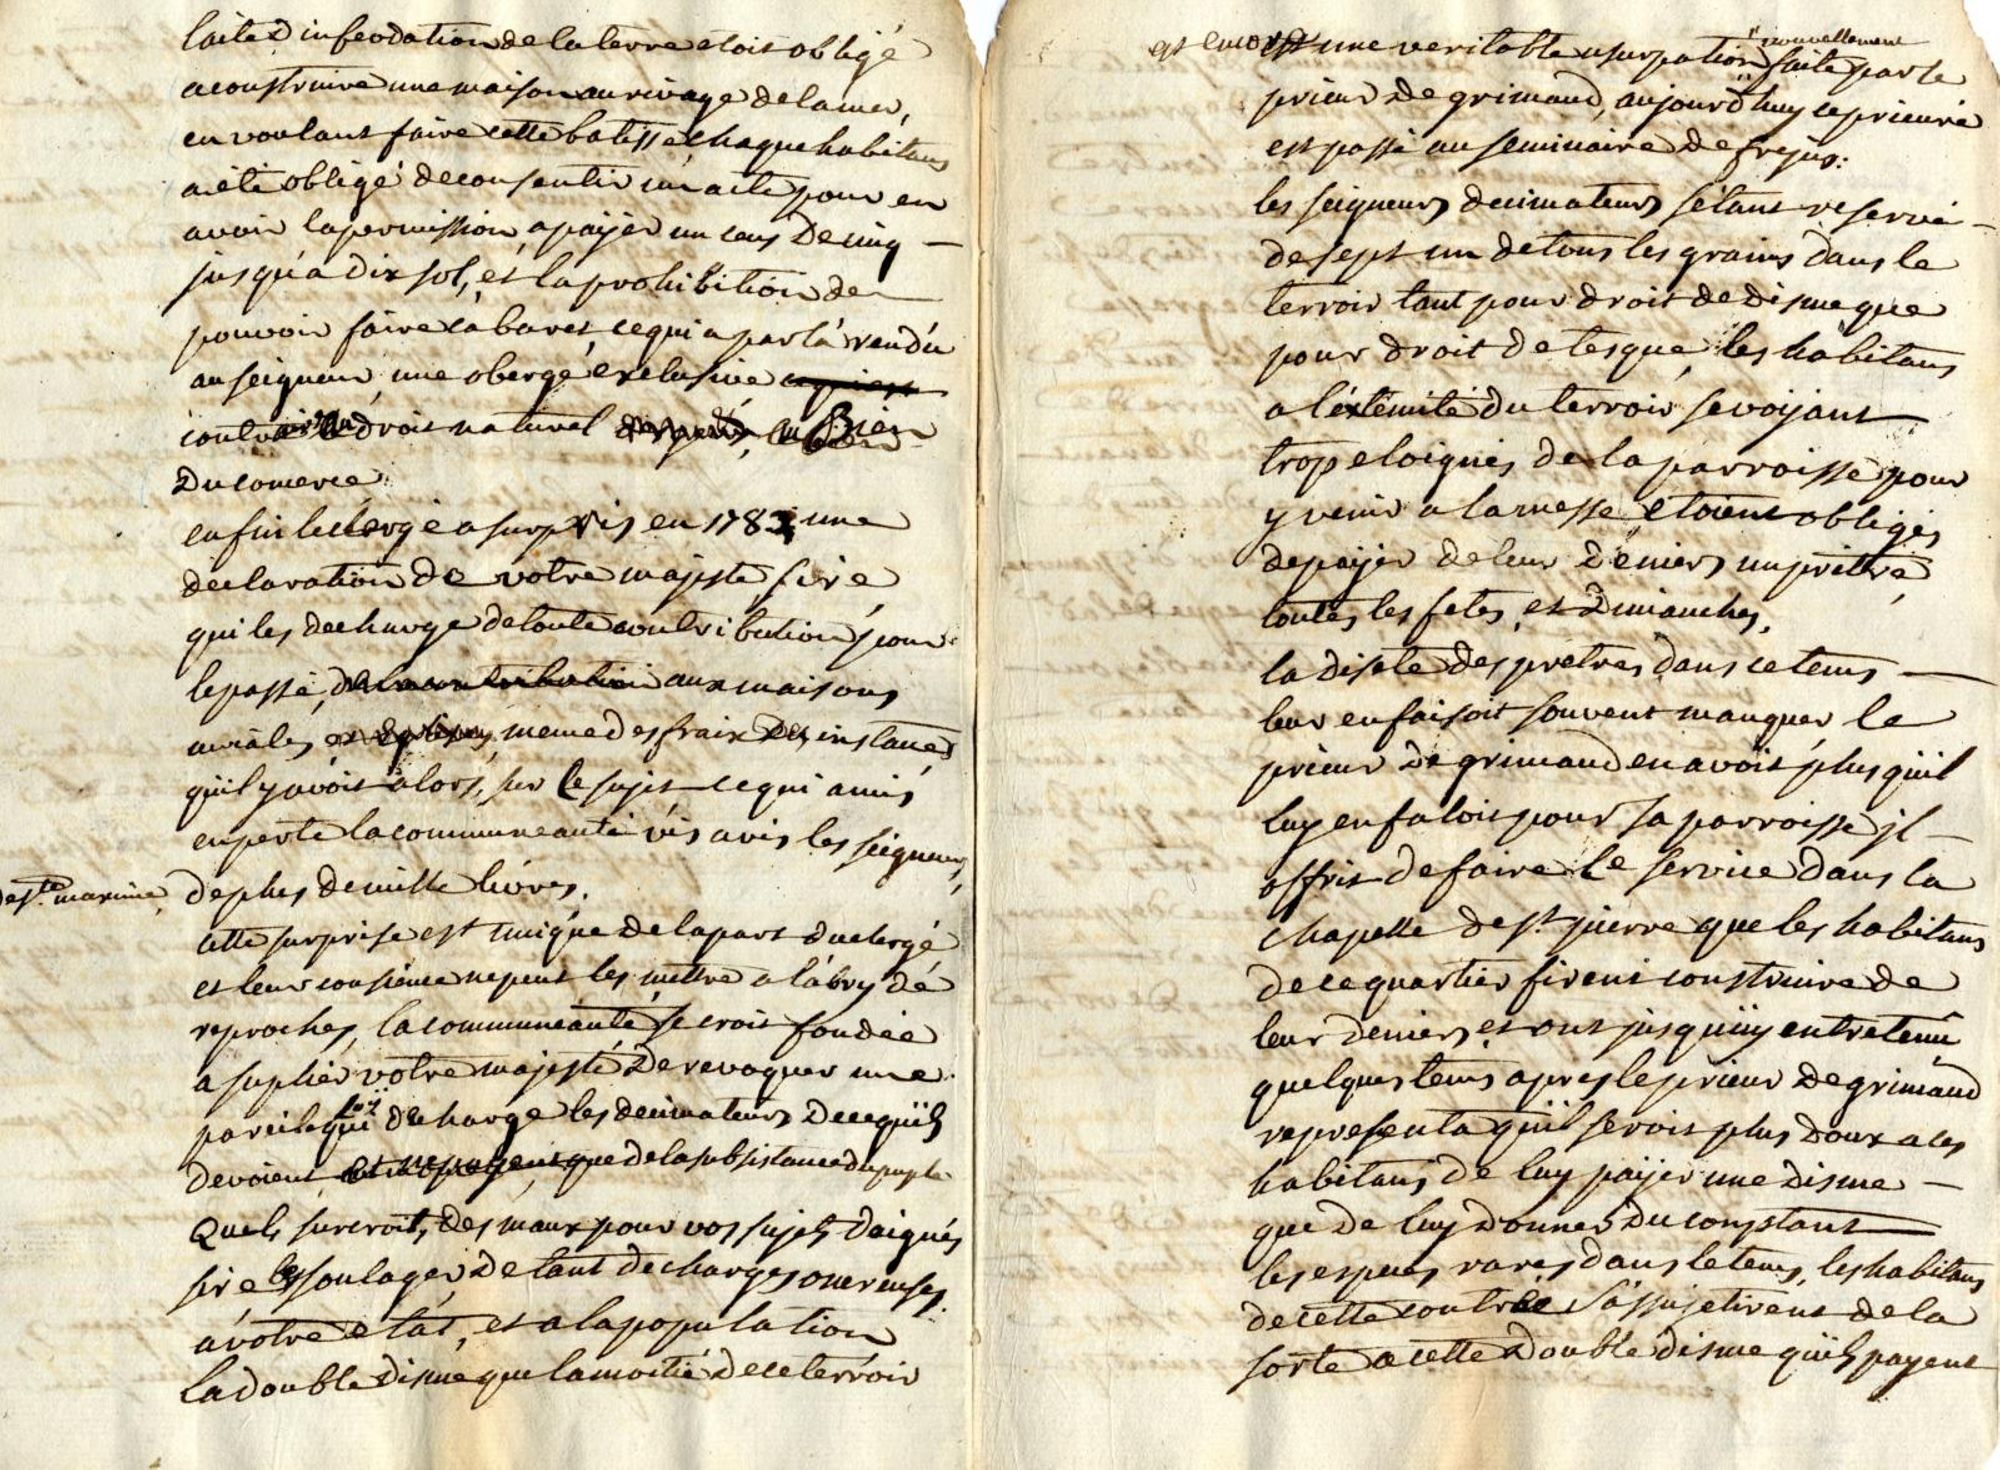 lacte d'infeodation de la terre etoit obligé
a construire une maison au rivage de la mer,
en voulant faire cette batisse, chaque habitans
a été obligé de consentir un acte pour en
avoir la permission, a païer un cens De cinq
jusqu'a dix sol, et la prohibition de
pouvoir faire cabaret, ce qui a par là rendu
au seigneur une obergé exclusive
contraire au droit naturel au Bien
Du comerce
enfin le clergé a surpris en 1783 une
declaration de votre majesté, sire
qui les decharge de toute contribution pour
le passé, de la contribution aux maisons
curiales meme des fraix des instances
quil y avoit alors, sur le sujet ce qui a mis
en perte la communeauté vis avis les seigneurs
de ste maxime, de plus de mille livres.
cette surprise est unique de la part du clergé
et leur consience ne peut les mettre a labry de
reproches, la communeauté se croit fondée
a suplier votre majesté De revoquer une
pareile loy qui decharge les decimateurs De ce quils
devoient et ne payent que de la subsistance du peuple
Quels surcroit, des maux pour vos sujets daignés
sire les soulager, De tant de charges onereuses
a votre etat, et a la population
La double disme que la moitié de ce terroir
est encore une veritable usurpation nouvellement faite par le
prieur De grimaud, aujourd'huy ce prieuré
est passé au seminaire De frejus:
les seigneurs decimateurs s'étant reservé
de sept un de tous les grains dans le
terroir tant pour droit de disme que
pour droit de tesque, les habitans
a l'extémité du terroir se voijant
trop eloignés de la parroisse pour
y venir a la messe etoient obligés
de paijer de leur deniers un prêtre
toutes les fetes, et Dmianches,
la disete des pretres dans ce tems
leur en faisoit souvent manquer, le
prieur De grimaud en avoit plus quil
luy en faloit pour sa parroisse jl
offrit de faire le service dans la
chapelle de st. pierre que les habitans
de ce quartier firent construire de
leur deniers, et ont jusquiiy entretenu
quelques tems apres le prieur De grimaud
representa quil seroit plus doux a ces
habitans de luy paijer une disme
que de luy donner du comptant
les especes rares dans le tems, les habitans
de cette contrée s'assujetirent de la
sorte a cette double disme quils payent